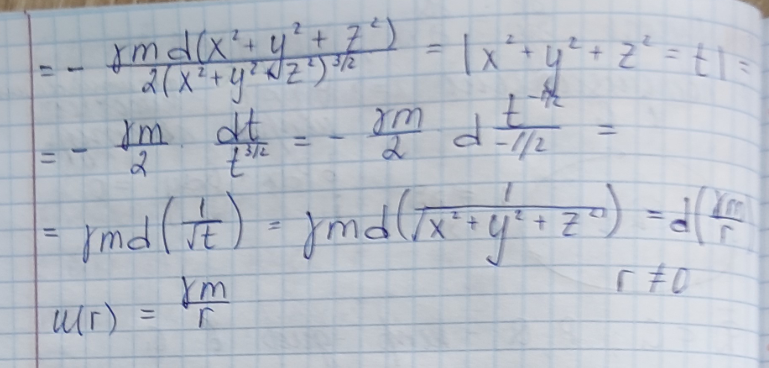 = - γm d(x² + y² + z²) / 2(x² + y² + z²)^3/2 = |x² + y² + z² = t| =
= - γm/2 dt/t^3/2 = - γm/2 d t^-1/2 / -1/2 =
= γmd(1/√t) = γmd(1/√x² + y² + z²) = d(γm/r
r ≠ 0
u(r) = γm/r